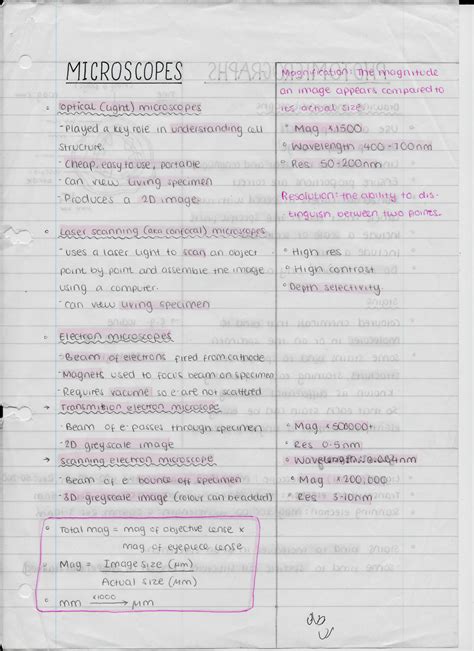 MICROSCOPES
Magnification: The magnitude
an image appears compared to
its actual size
Optical (Light) microscopes
- Played a key role in understanding cell
structure.
- Cheap, easy to use, portable
- Can view living specimen
- Produces a 2D image
Mag x1500
Wavelength 400-700nm
Res: 50-200nm
Resolution: the ability to dis-
tinguish between two points.
Laser scanning (aka confocal) microscopes
- uses a laser light to scan an object
point by point and assemble the image
using a computer.
- Can view living specimen
High res
High contrast
Depth selectivity.
Electron microscopes
- Beam of electrons fired from cathode
- Magnets used to focus beam on specimen
- Requires vacume so e- are not scattered
→ Transmition electron microscope
- Beam of e- passes through specimen
- 2D greyscale image
Mag x500000
Res 0.5nm
Wavelength: 0.004nm
→ scanning electron microscope
- Beam of e- bounce off specimen
- 3D greyscale image (colour can be added)
Mag x200,000
Res 3-10nm
Total mag = mag of objective lense x
mag. of eyepiece lense
Mag = Image size (μm)
Actual size (μm)
mm x1000 → μm